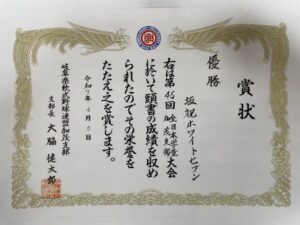 賞状
優勝
坂祝ホワイトセブン
右は第45回全日本学童加茂支部大会
に於いて頭書の成績を収め
られたのでその栄誉を
たたえ之を賞します。
令和7年4月5日
岐阜県軟式野球連盟加茂支部
支部長 大脇健太郎